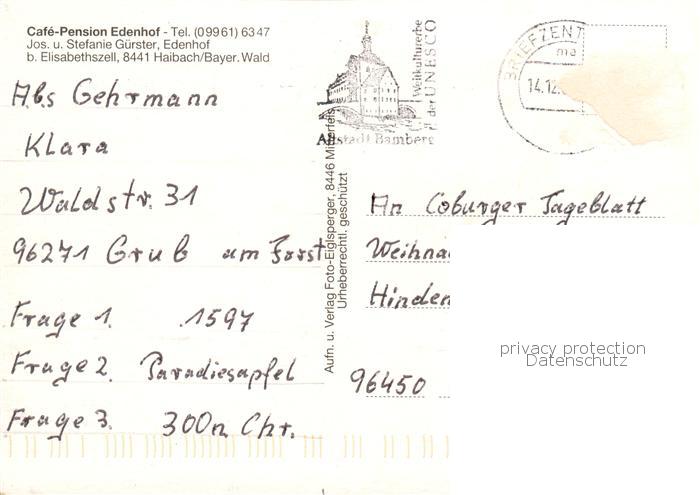 Café-Pension Edenhof - Tel. (0 99 61) 63 47
Jos. u. Stefanie Gürster, Edenhof
b. Elisabethszell, 8441 Haibach/Bayer. Wald
Abs Gehrmann
Klara
Waldstr. 31
96271 Grub am Forst
Frage 1. 1597
Frage 2. Paradiesapfel
Frage 3. 300 n Chr.
Aufn. u. Verlag Foto-Eiglsperger, 8446 Mitterfels
Urheberrechtl. geschützt
Altstadt Bamberg
Weltkulturerbe
der UNESCO
BRIEFZENT
ma
14.12.
An Coburger Tageblatt
Weihna
Hinden
96450
privacy protection
Datenschutz